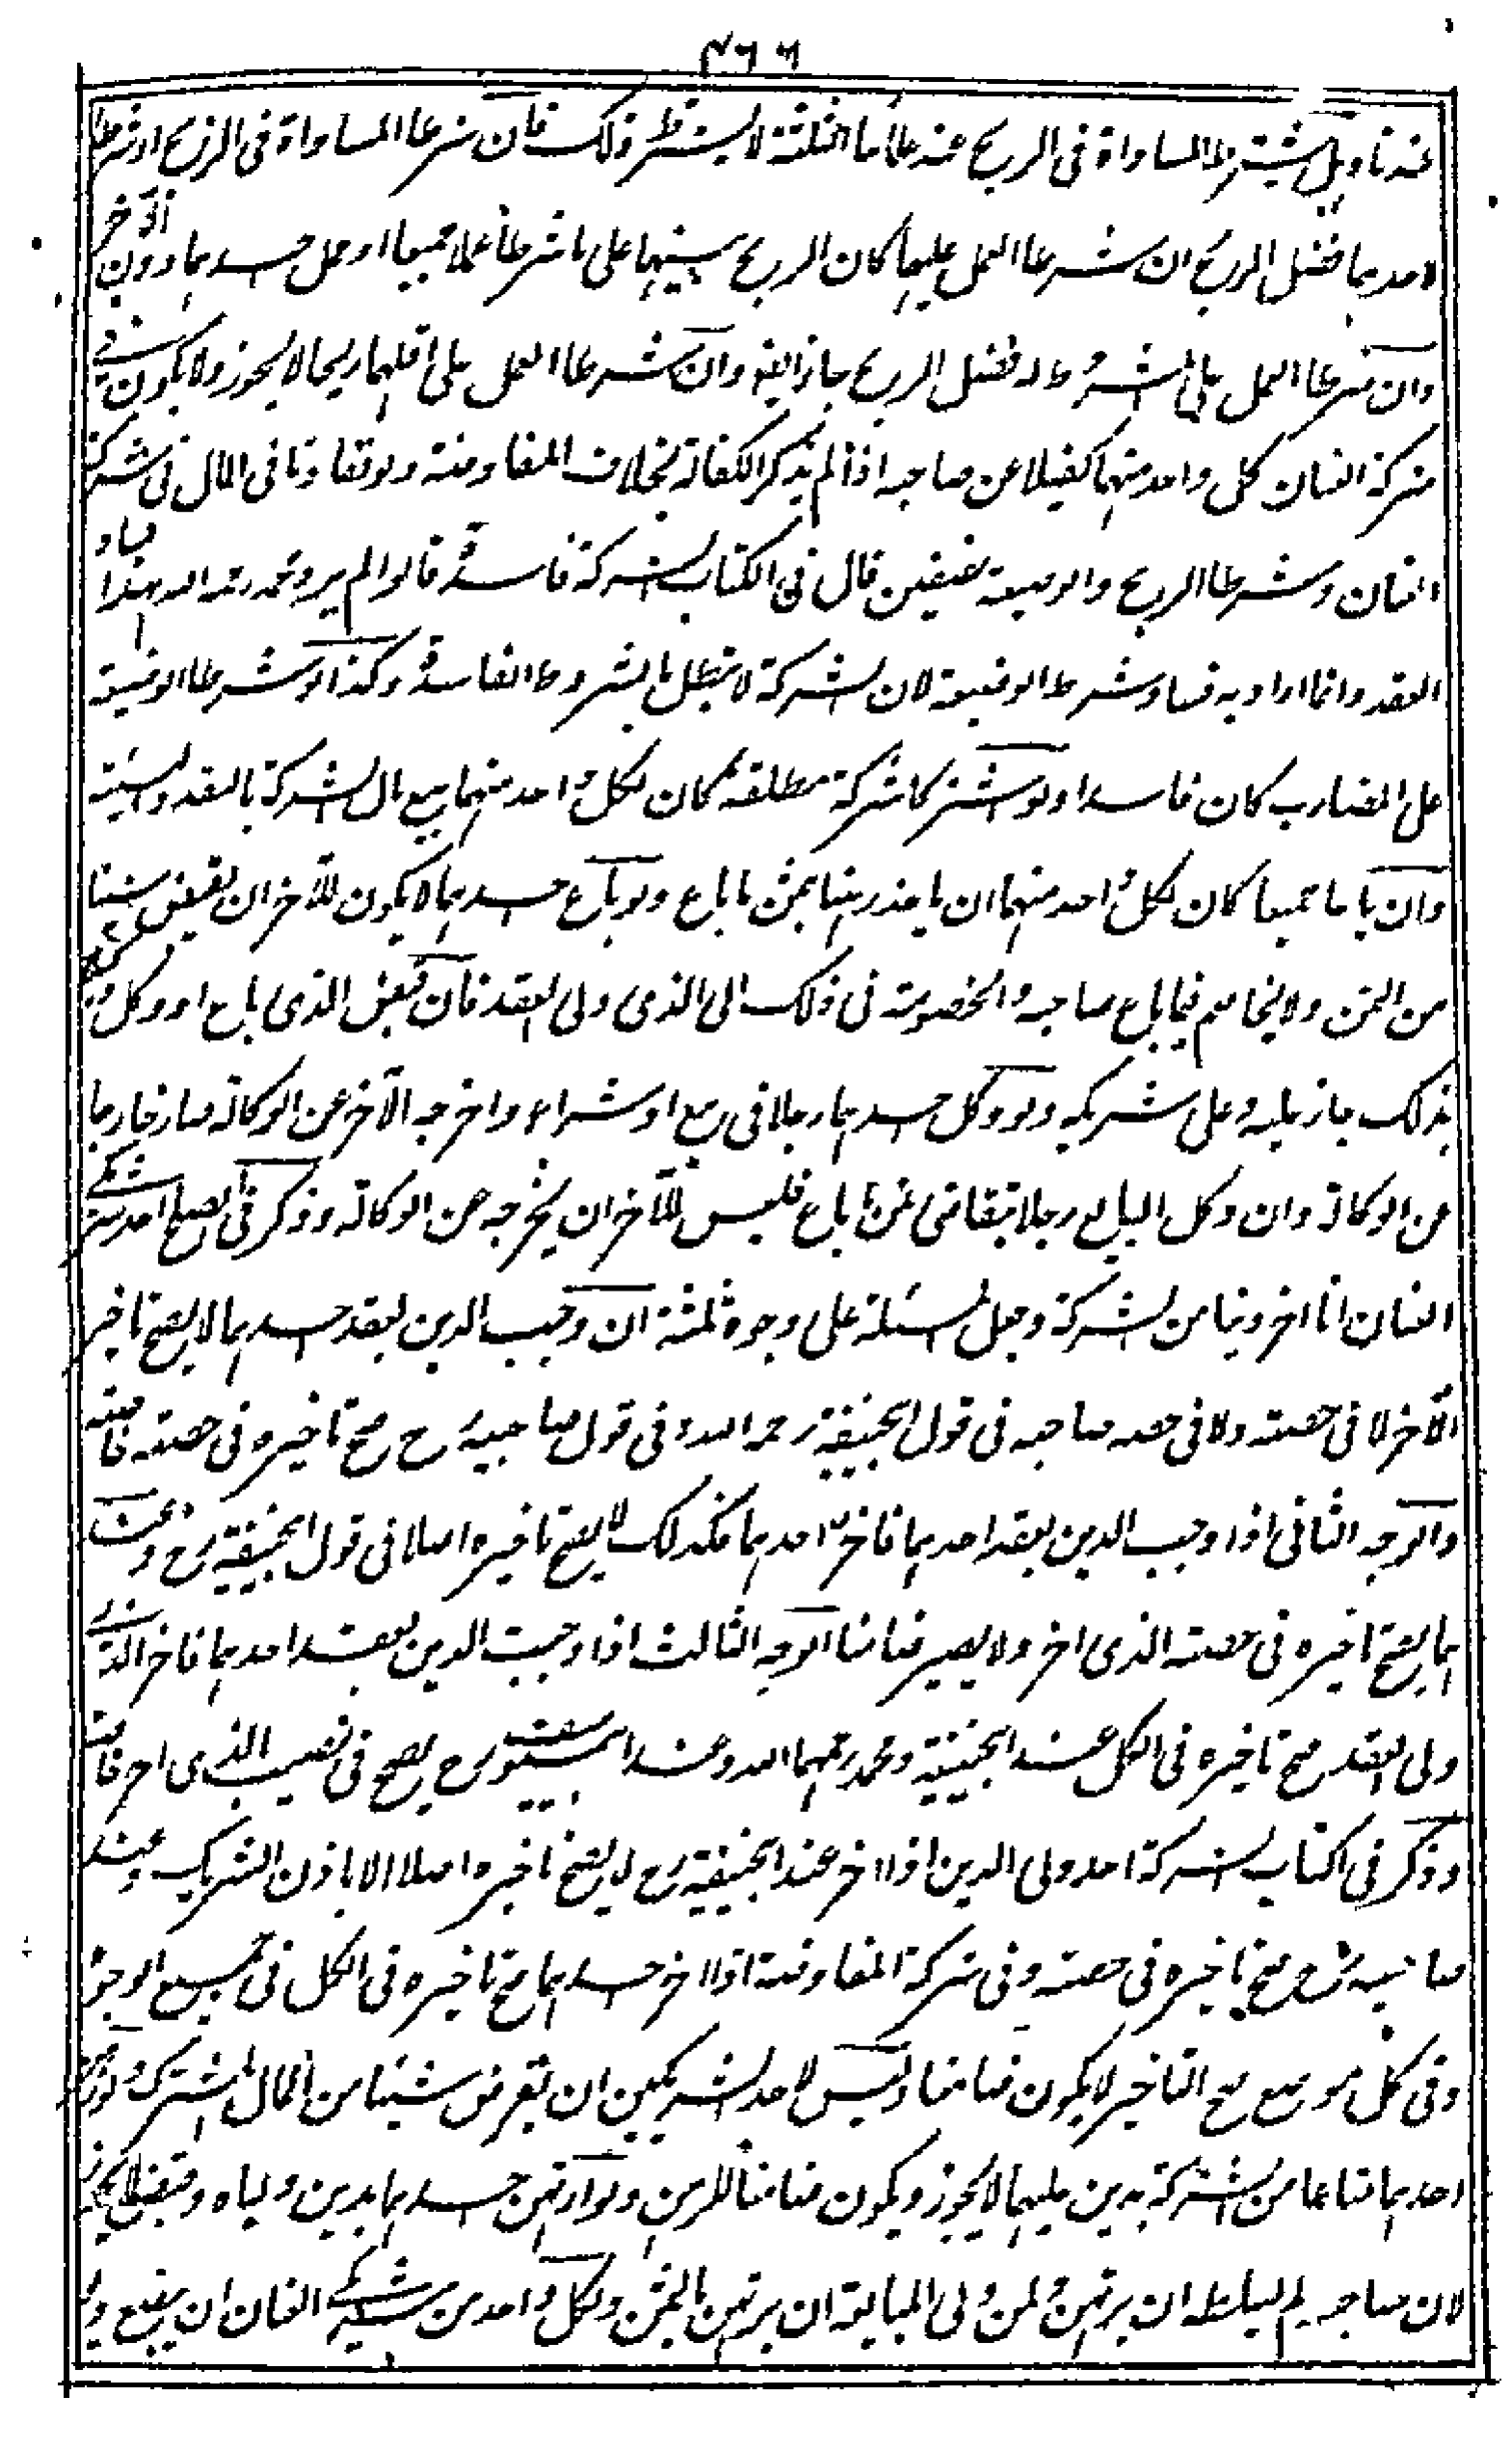 ٤٦٦
عند تاويل يشترط المساواة فى الربح عند علمائنا الثلثة لا يشترط ذلك فان شرطا المساواة فى الربح او شرطا
لاحدهما فضل الربح ان شرطا العمل عليهما كان الربح بينهما على ما شرطا عملا جميعا او عمل احدهما دون الآخر
وان شرطا العمل على المشروط له فضل الربح جاز ايضا وان شرطا العمل على اقلهما ربحا لا يجوز ولا يكون فى
شركة العنان كل واحد منهما كفيلا عن صاحبه اذا لم يذكر الكفالة بخلاف المفاوضة ولو تفاوتا فى المال فى شركة
العنان وشرطا الربح والوضيعة نصفين قال فى الكتاب الشركة فاسدة قالوا لم يرد محمد رحمه الله بهذا فساد
العقد وانما اراد به فساد شرط الوضيعة لان الشركة لا تبطل بالشروط الفاسدة وكذا لو شرطا الوضيعة
على المضارب كان فاسدا ولو اشتركا شركة مطلقة كان لكل واحد منهما بيع مال الشركة بالنقد والنسيئة
وان باعا جميعا كان لكل واحد منهما ان ياخذ رهنا بثمن ما باع ولو باع احدهما لا يكون للآخر ان يقبض شيئا
من الثمن ولا يخاصم فيما باع صاحبه والخصومة فى ذلك الى الذى ولى العقد فان قبض الذى باع او وكل وكيلا
بذلك جاز عليه وعلى شريكه ولو وكل احدهما رجلا فى بيع او شراء واخرجه الآخر عن الوكالة صار خارجا
عن الوكالة وان وكل البايع رجلا بتقاضى ثمن ما باع فليس للآخر ان يخرجه عن الوكالة وذكر فى الصلح احد شريكى
العنان اذا اخر دينا من الشركة وجعل المسئلة على وجوه ثلثة ان وجب الدين بعقد احدهما لا يصح تاخير
الآخر لا فى حصته ولا فى حصة صاحبه فى قول ابيحنيفة رحمه الله وفى قول صاحبيه رح صح تاخيره فى حصته خاصة
والوجه الثانى اذا وجب الدين بعقد احدهما فاخر احدهما فكذلك لا يصح تاخيره اصلا فى قول ابيحنيفة رح وعند
هما يصح تاخيره فى حصة الذى اخر ولا يصير ضامنا الوجه الثالث اذا وجبت الدين بعقد احدهما فاخر الذى
ولى العقد صح تاخيره فى الكل عند ابيحنيفة ومحمد رحمهما الله وعند ابى يوسف رح يصح فى نصيب الذى اخر خاصة
وذكر فى كتاب الشركة احد ولى الدين اذا اخر عند ابيحنيفة رح لا يصح تاخيره اصلا الا باذن الشريك وعند
صاحبيه رح صح تاخيره فى حصته وفى شركة المفاوضة اذا اخر احدهما صح تاخيره فى الكل فى جميع الوجوه
وفى كل موضع صح التاخير لا يكون ضامنا وليس لاحد الشريكين ان يقرض شيئا من المال المشترك ولو رهن
احدهما متاعا من الشركة بدين عليهما لا يجوز ويكون ضامنا للرهن ولو ارتهن احدهما بدين ولياه وقبض لا يجوز
لان صاحبه لم يسلطه ان يرتهن ولمن ولى المبايعة ان يرتهن بالثمن ولكل واحد من شريكى العنان ان يبضع